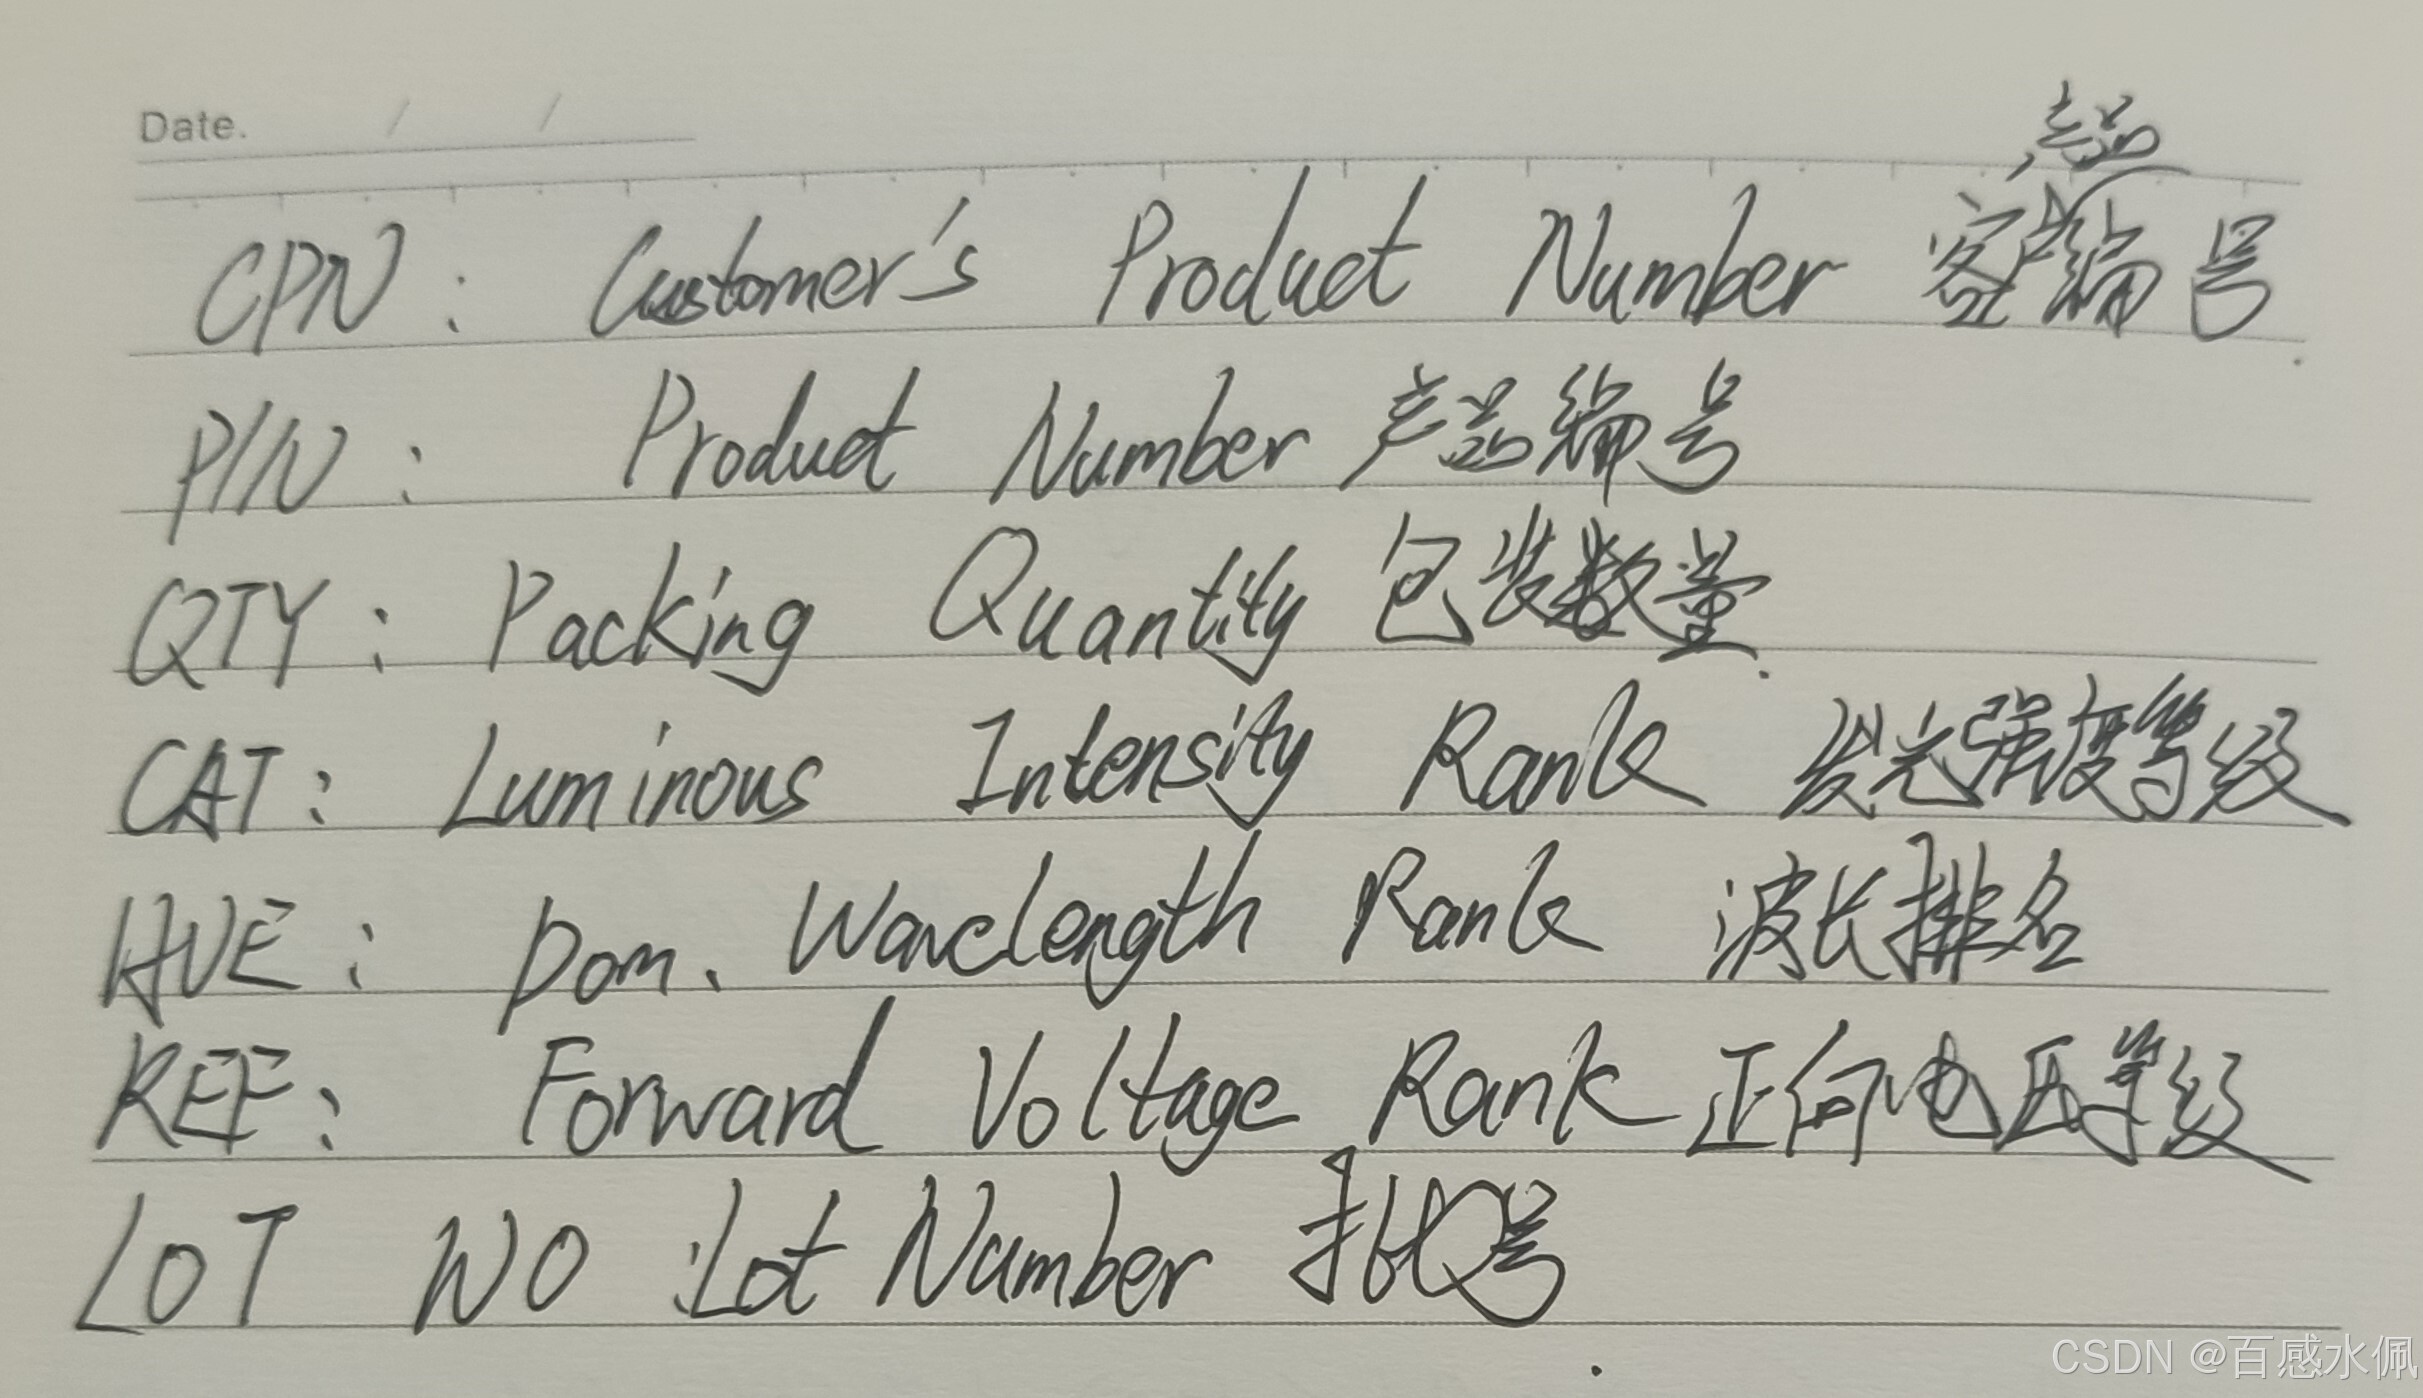 Date. / /
CPN: Customer's Product Number 客户产品编号
P/N: Product Number 产品编号
QTY: Packing Quantity 包装数量
CAT: Luminous Intensity Rank 发光强度等级
HUE: Dom. Wavelength Rank 波长排名
REF: Forward Voltage Rank 正向电压等级
LOT NO :Lot Number 批号
CSDN @百感水佩